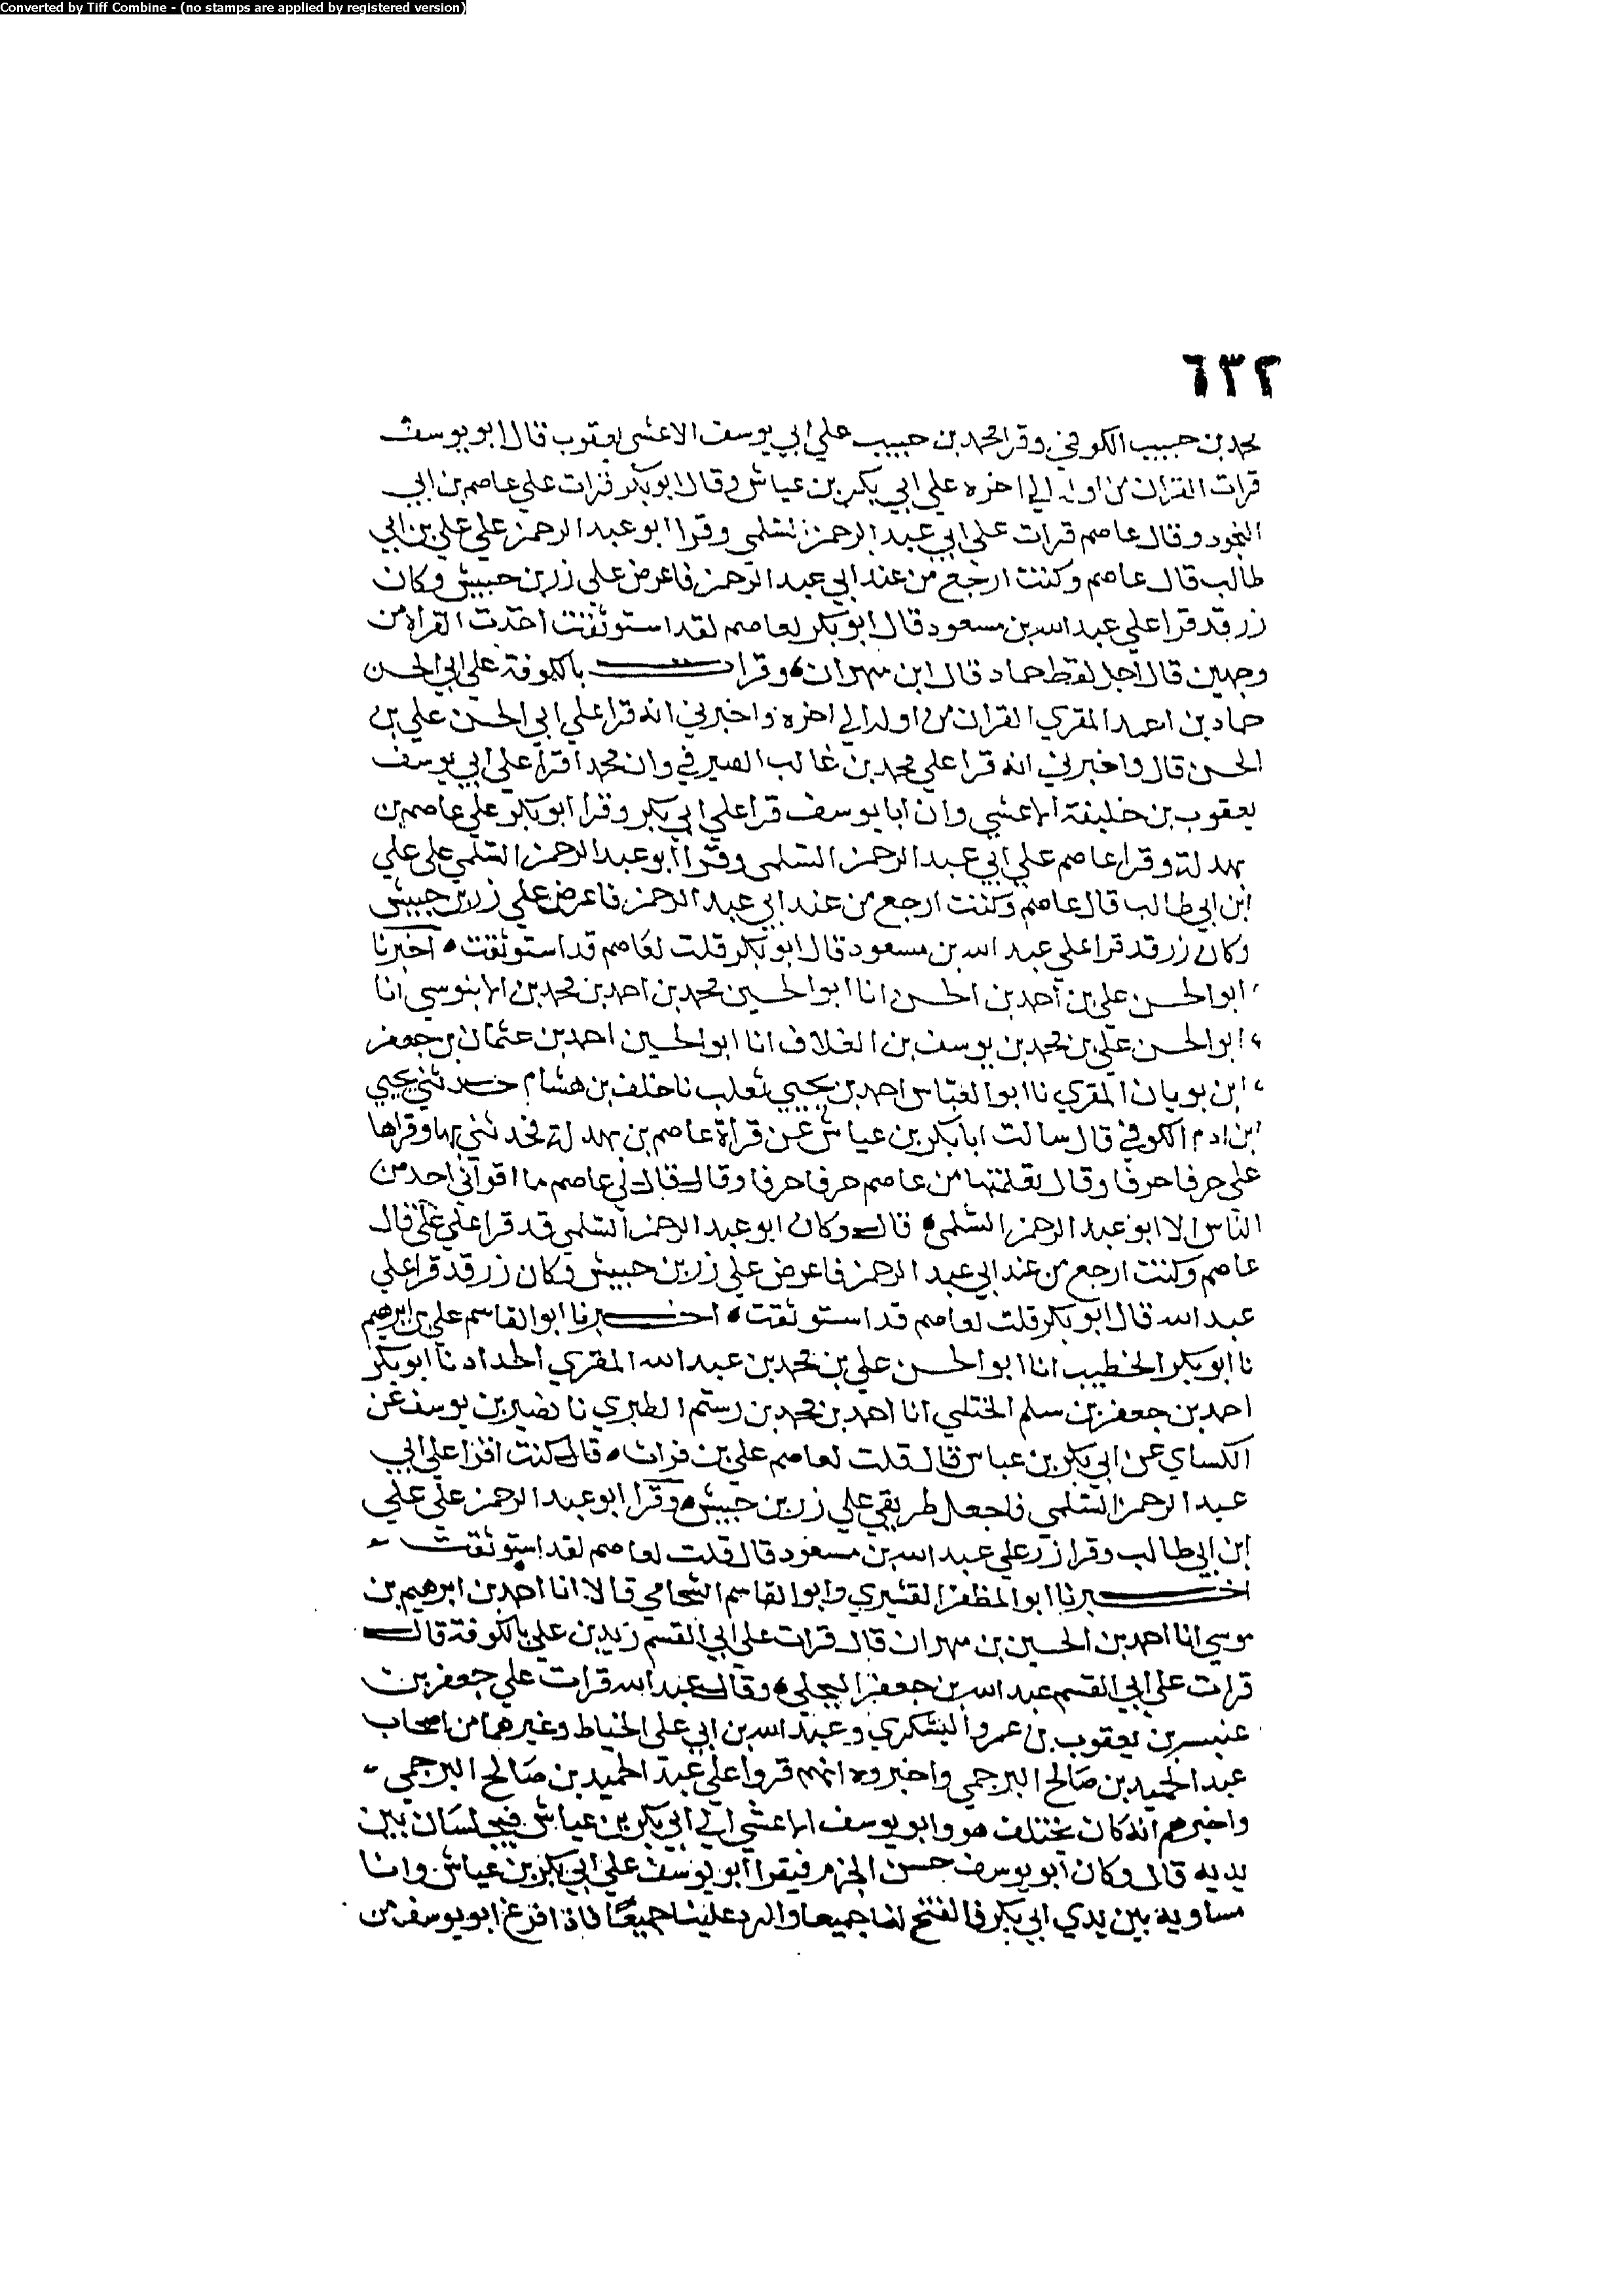 Converted by Tiff Combine - (no stamps are applied by registered version)
٦٣٢
محمد بن حبيب الكوفي وقرا محمد بن حبيب علي ابي يوسف الاعشى يعقوب قال ابو يوسف
قرات القران من اوله الي اخره علي ابي بكر بن عياش وقال ابو بكر قرات علي عاصم بن ابي
النجود وقال عاصم قرات علي ابي عبد الرحمن السلمي وقرا ابو عبد الرحمن علي علي بن ابي
طالب قال عاصم وكنت ارجع من عند ابي عبد الرحمن فاعرض علي زر بن حبيش وكان
زر قد قرا علي عبد الله بن مسعود قال ابو بكر لعاصم لقد استوثقت اخذت القراه من
وجهين قال اجل لفظ حماد قال ابن مهران وقرات بالكوفة علي ابي الحسن
حماد بن احمد المقري القران من اوله الي اخره واخبرني انه قرا علي ابي الحسن علي بن
الحسن قال واخبرني انه قرا علي محمد بن غالب الصيرفي وان محمدا قرا علي ابي يوسف
يعقوب بن خليفة الاعشي وان ابا يوسف قرا علي ابي بكر وقرا ابو بكر علي عاصم بن
بهدلة وقرا عاصم علي ابي عبد الرحمن السلمي وقرا ابو عبد الرحمن السلمي علي علي
ابن ابي طالب قال عاصم وكنت ارجع من عند ابي عبد الرحمن فاعرض علي زر بن حبيش
وكان زر قد قرا علي عبد الله بن مسعود قال ابو بكر قلت لعاصم قد استوثقت اخبرنا
ابو الحسن علي بن احمد بن الحسن انا ابو الحسين محمد بن احمد بن محمد بن الابنوسي انا
ابو الحسن علي بن محمد بن يوسف بن العلاف انا ابو الحسين احمد بن عثمان بن جعفر
ابن بويان المقري نا ابو العباس احمد بن يحيي ثعلب نا خلف بن هشام حدثني يحيي
ابن ادم الكوفي قال سالت ابا بكر بن عياش عن قراة عاصم بن بهدلة فحدثني بها وقراها
علي حرفا حرفا وقال تعلمتها من عاصم حرفا حرفا وقال قال لي عاصم ما اقراني احد من
الناس الا ابو عبد الرحمن السلمي قال وكان ابو عبد الرحمن السلمي قد قرا علي علي قال
عاصم وكنت ارجع من عند ابي عبد الرحمن فاعرض علي زر بن حبيش وكان زر قد قرا علي
عبد الله قال ابو بكر قلت لعاصم قد استوثقت اخبرنا ابو القاسم علي بن ابرهيم
نا ابو بكر الخطيب انا ابو الحسن علي بن محمد بن عبد الله المقري الحداد نا ابو بكر
احمد بن جعفر بن سلم الختلي انا احمد بن محمد بن رستم الطبري نا نصير بن يوسف عن
الكساي عن ابي بكر بن عياش قال قلت لعاصم علي من قرات قال كنت اقرا علي ابي
عبد الرحمن السلمي فاجعل طريقي علي زر بن حبيش وقرا ابو عبد الرحمن علي علي
ابن ابي طالب وقرا زر علي عبد الله بن مسعود قال قلت لعاصم لقد استوثقت
اخبرنا ابو المظفر القشيري وابو القاسم الشحامي قالا انا احمد بن ابرهيم بن
موسي انا احمد بن الحسين بن مهران قال قرات علي ابي القسم زيد بن علي بالكوفة قال
قرات علي ابي القسم عبد الله بن جعفر البجلي وقال عبد الله قرات علي جعفر بن
عنبسر بن يعقوب بن عمرو اليشكري وعبد الله بن ابي علي الخياط وغيرهما من اصحاب
عبد الحميد بن صالح البرجمي واخبروه انهم قروا علي عبد الحميد بن صالح البرجمي
واخبرهم انه كان يختلف هو وابو يوسف الاعشي الي ابي بكر بن عياش فيجلسان بين
يديه قال وكان ابو يوسف حسن الجزم فيقرا ابو يوسف علي ابي بكر بن عياش وانا
مساويه بين يدي ابي بكر فالفتح لنا جميعا والرد علينا جميعا فاذا افرغ ابو يوسف من